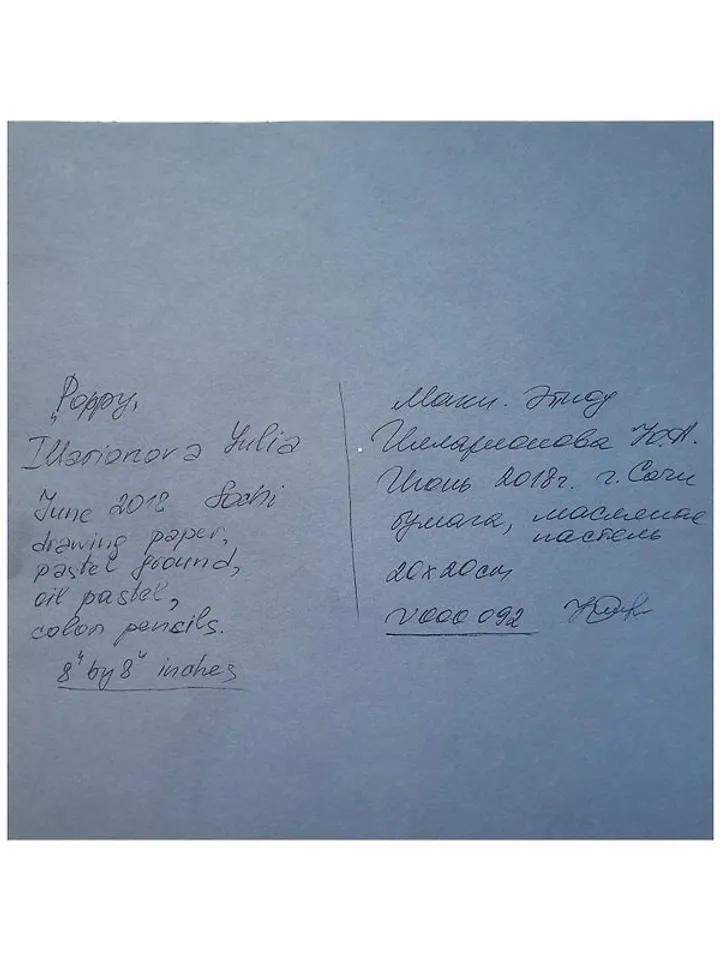 „Poppy,
Illarionova Yulia
June 2018 Sochi
drawing paper,
pastel ground,
oil pastel,
color pencils.
8" by 8" inches
Маки. Этюд
Илларионова Ю.А.
Июнь 2018г. г. Сочи
бумага, масляная
пастель
20х20см
V000 092